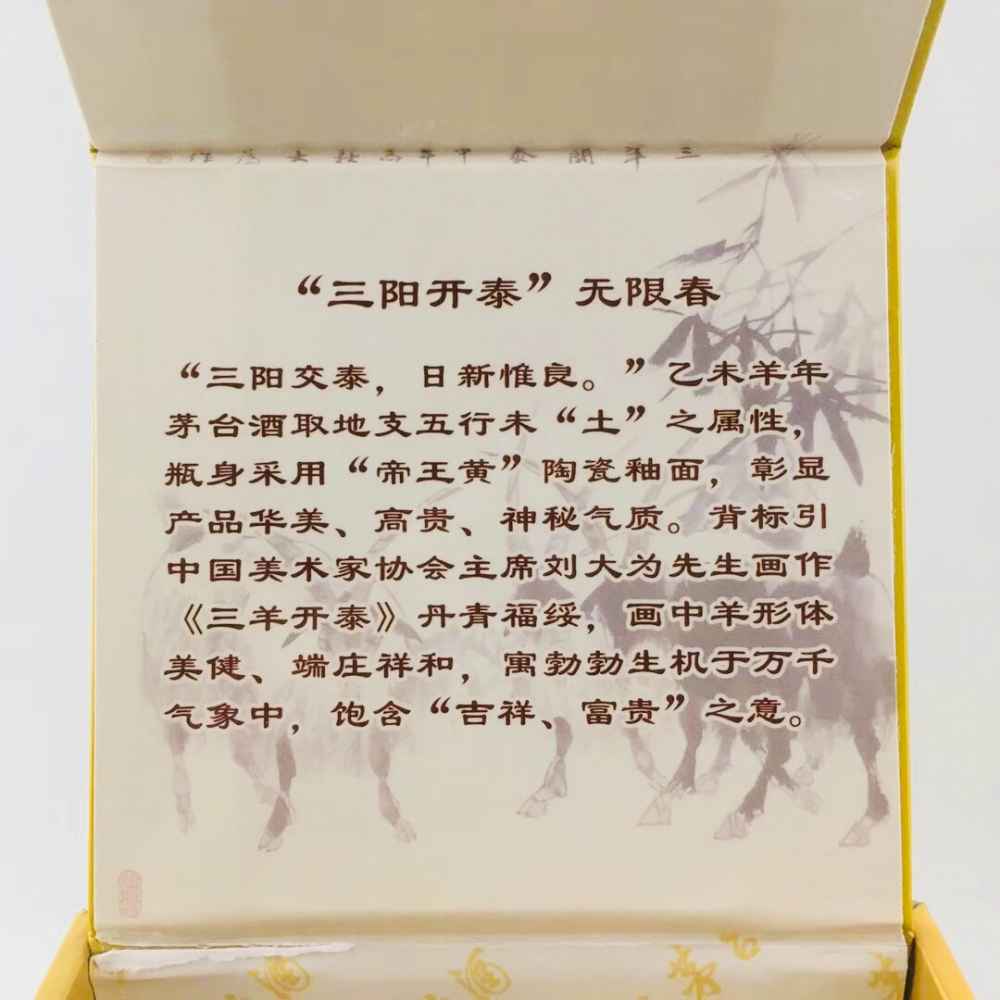 “三阳开泰”无限春
“三阳交泰，日新惟良。”乙未羊年
茅台酒取地支五行未“土”之属性，
瓶身采用“帝王黄”陶瓷釉面，彰显
产品华美、高贵、神秘气质。背标引
中国美术家协会主席刘大为先生画作
《三羊开泰》丹青福绥，画中羊形体
美健、端庄祥和，寓勃勃生机于万千
气象中，饱含“吉祥、富贵”之意。